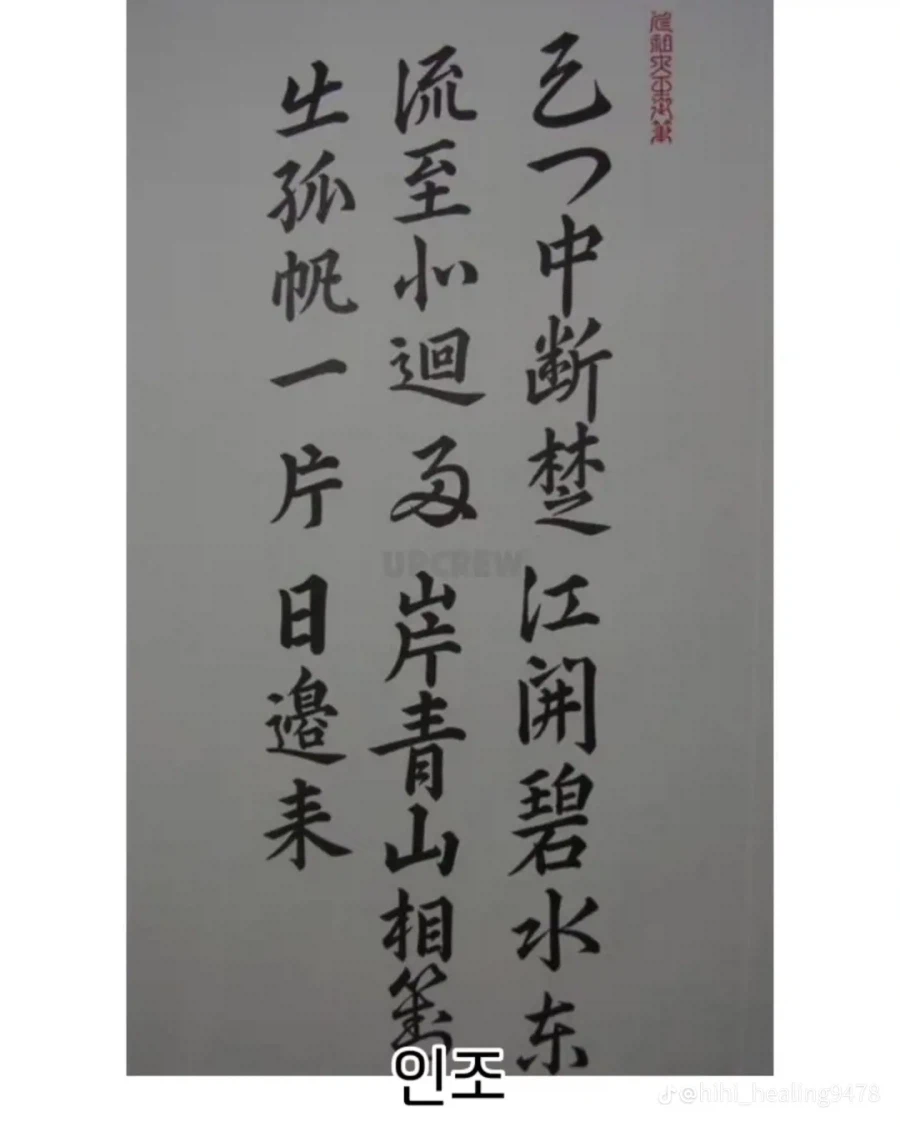 天门中断楚江開碧水东
流至此迴両岸青山相對
出孤帆一片日邊来
UPCREW
인조
@hihi_healing9478